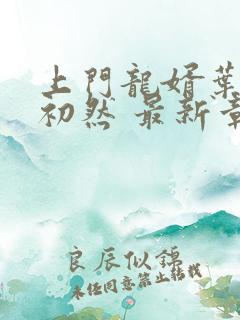 上門龍婿葉
初然 最新章
良辰似錦
未经同意禁止转载